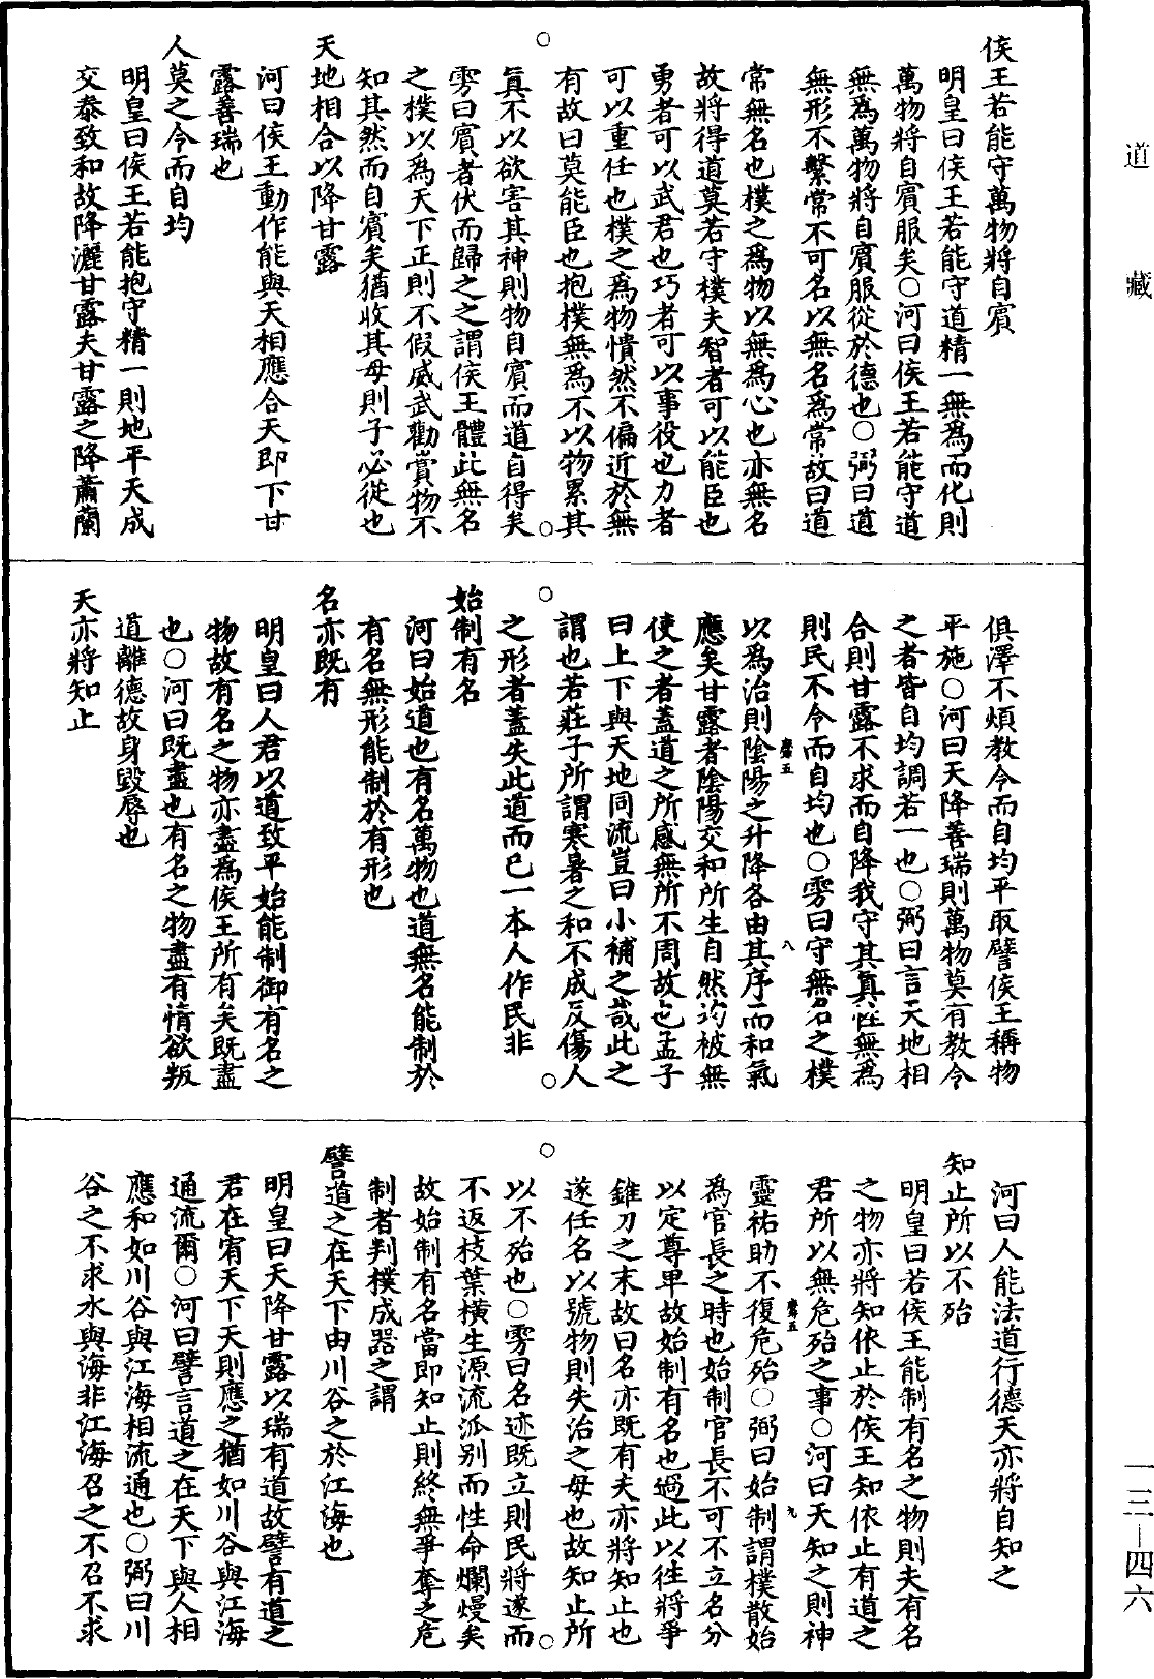 道藏
侯王若能守萬物將自賓
明皇曰侯王若能守道精一無為而化則
萬物將自賓服矣○河曰侯王若能守道
無為萬物將自賓服從於德也○弼曰道
無形不繫常不可名以無名為常故曰道
常無名也樸之為物以無為心也亦無名
故將得道莫若守樸夫智者可以能臣也
勇者可以武君也巧者可以事役也力者
可以重任也樸之為物憒然不偏近於無
有故曰莫能臣也抱樸無為不以物累其
真不以欲害其神則物自賓而道自得矣
雱曰賓者伏而歸之之謂侯王體此無名
之樸以為天下正則不假威武勸賞物不
知其然而自賓矣猶收其母則子必從也
天地相合以降甘露
河曰侯王動作能與天相應合天即下甘
露善瑞也
人莫之令而自均
明皇曰侯王若能抱守精一則地平天成
交泰致和故降灑甘露夫甘露之降蕭蘭
俱澤不煩教令而自均平取譬侯王稱物
平施○河曰天降善瑞則萬物莫有教令
之者皆自均調若一也○弼曰言天地相
合則甘露不求而自降我守其真性無為
則民不令而自均也○雱曰守無名之樸
八
以為治則陰陽之升降各由其序而和氣
應矣甘露者陰陽交和所生自然均被無
使之者蓋道之所感無所不周故也孟子
曰上下與天地同流豈曰小補之哉此之
謂也若莊子所謂寒暑之和不成反傷人
之形者蓋失此道而已一本人作民非
始制有名
河曰始道也有名萬物也道無名能制於
有名無形能制於有形也
名亦既有
明皇曰人君以道致平始能制御有名之
物故有名之物亦盡為侯王所有矣既盡
也○河曰既盡也有名之物盡有情欲叛
道離德故身毀辱也
天亦將知止
河曰人能法道行德天亦將自知之
知止所以不殆
明皇曰若侯王能制有名之物則夫有名
之物亦將知依止於侯王知依止有道之
君所以無危殆之事○河曰天知之則神
靈祐助不復危殆○弼曰始制謂樸散始
九
為官長之時也始制官長不可不立名分
以定尊卑故始制有名也過此以往將爭
錐刀之末故曰名亦既有夫亦將知止也
遂任名以號物則失治之母也故知止所
以不殆也○雱曰名迹既立則民將遂而
不返枝葉橫生源流派別而性命爛熳矣
故始制有名當即知止則終無爭奪之危
制者判樸成器之謂
譬道之在天下由川谷之於江海也
明皇曰天降甘露以瑞有道故譬有道之
君在宥天下天則應之猶如川谷與江海
通流爾○河曰譬言道之在天下與人相
應和如川谷與江海相流通也○弼曰川
谷之不求水與海非江海召之不召不求
一三—四六